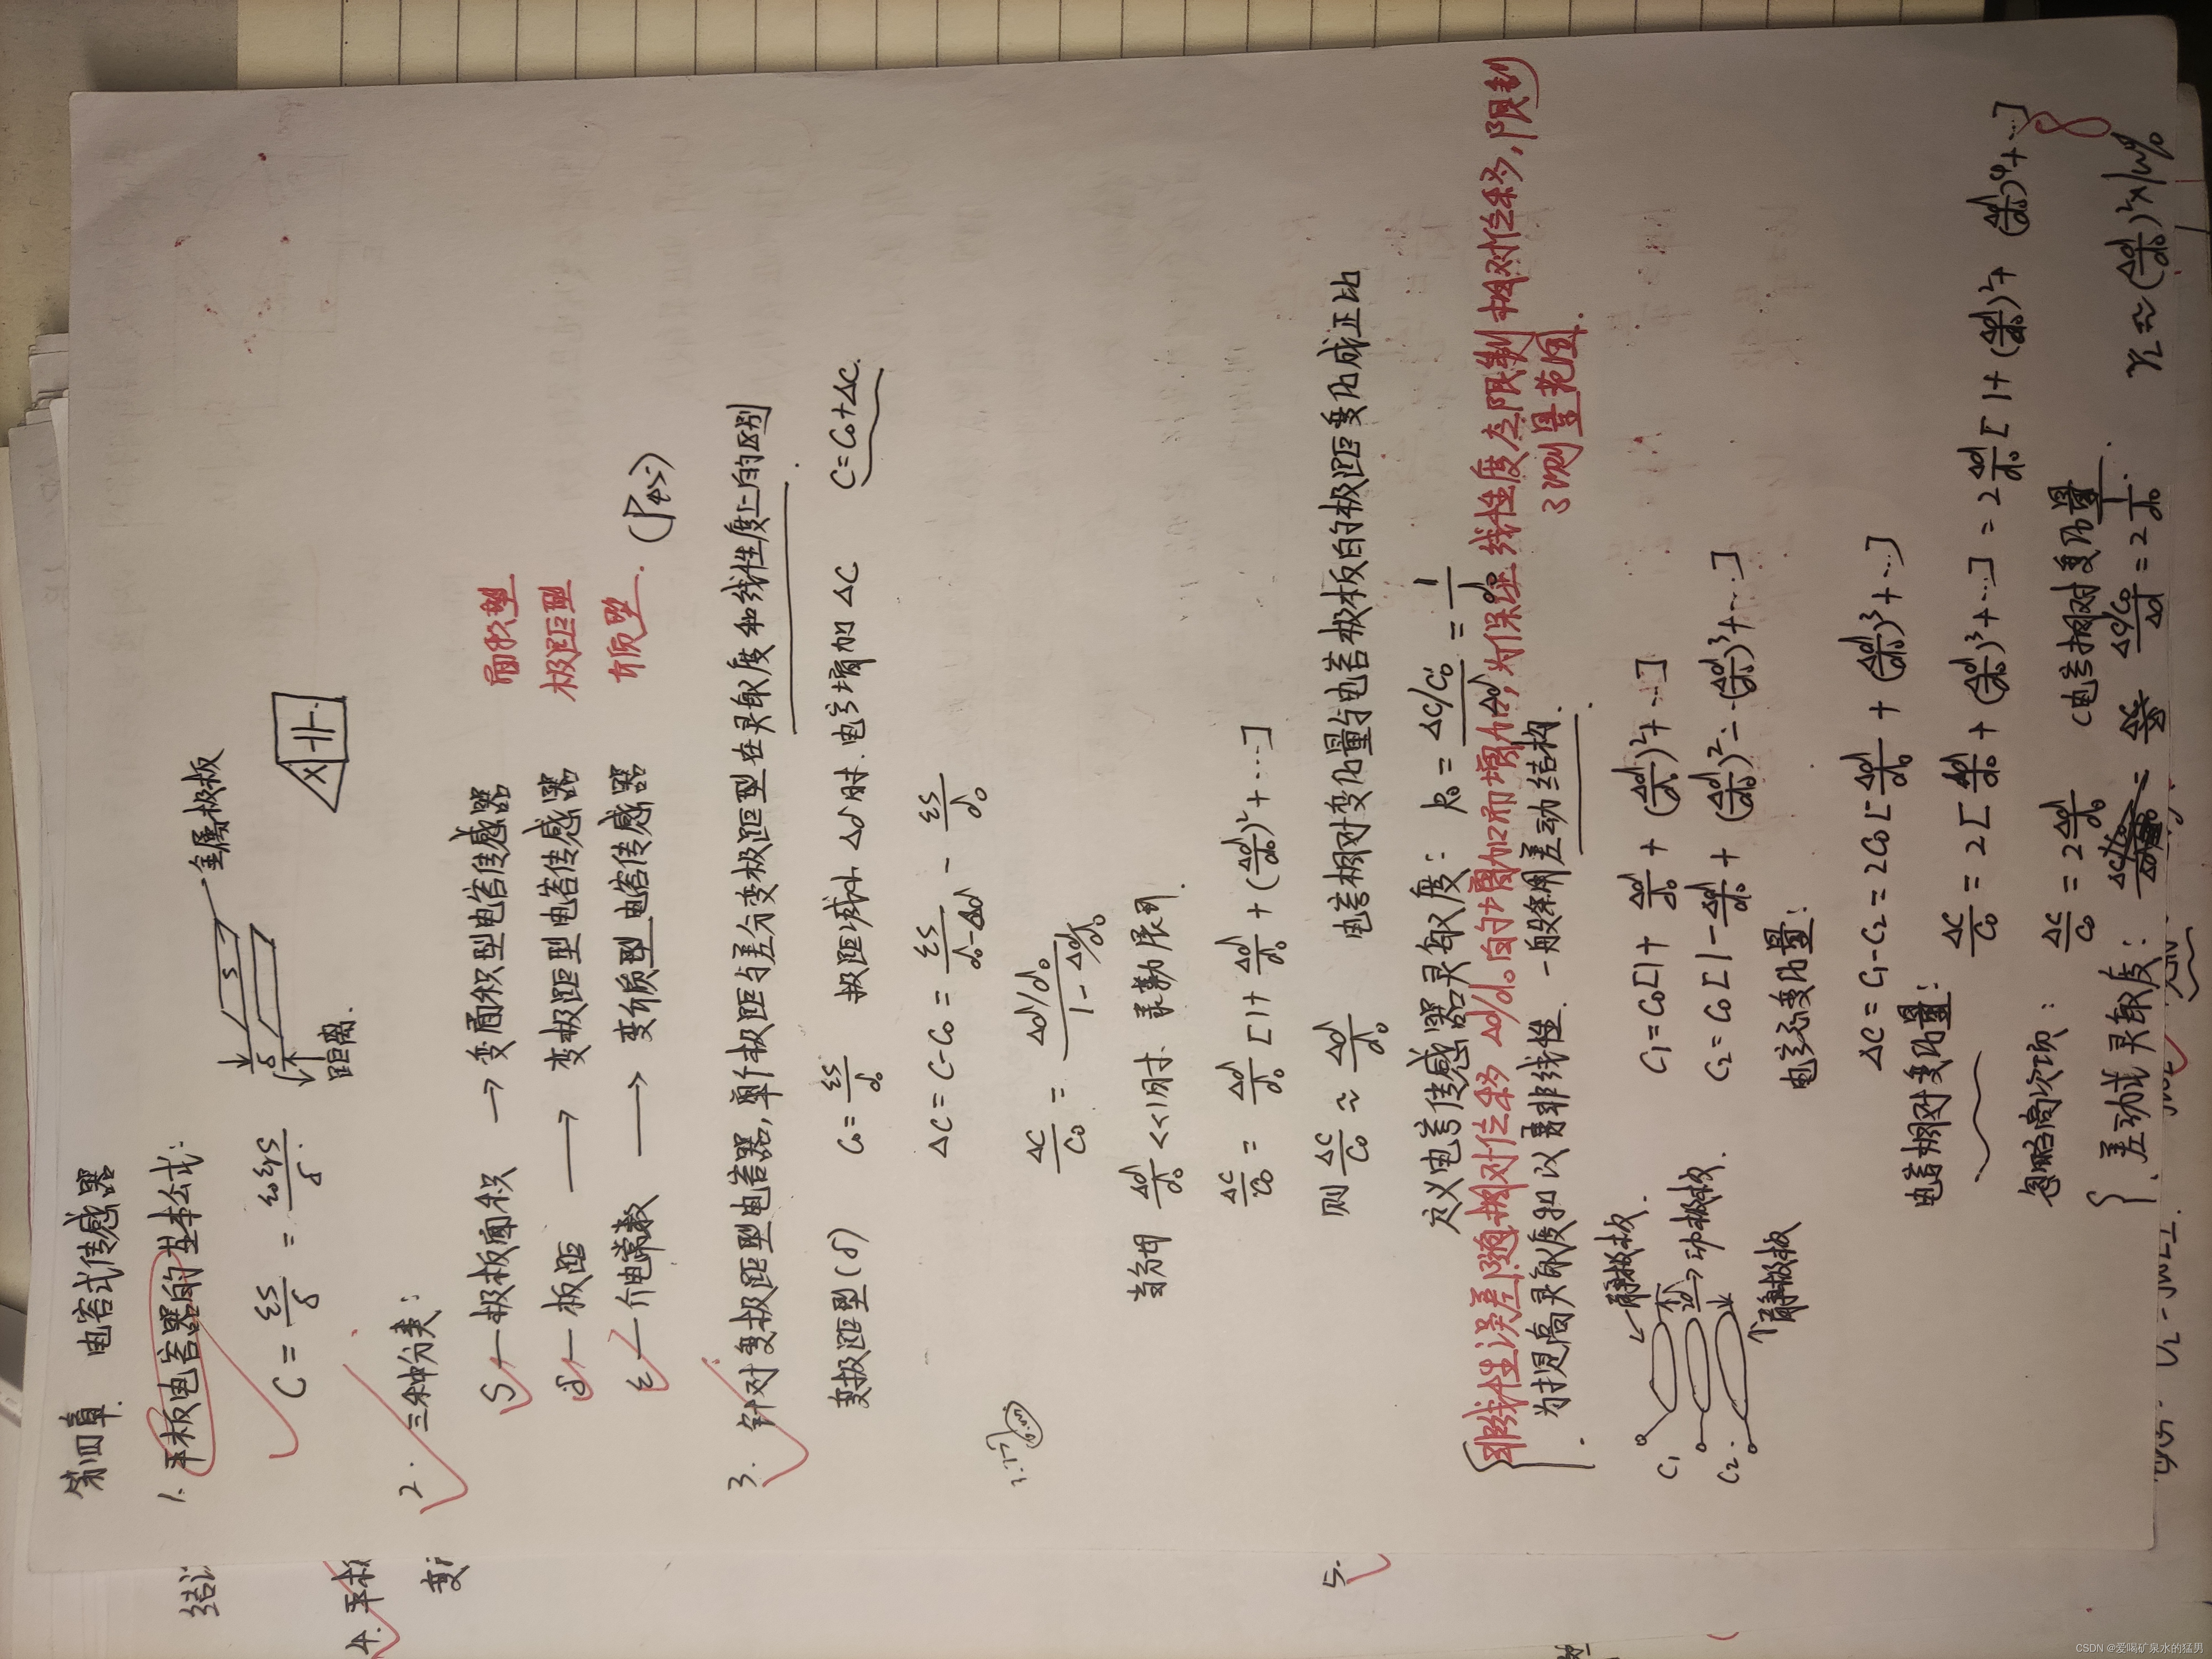 第四章 电容式传感器
1. 平板电容器的基本公式:
C = εS/δ = ε₀εᵣS/δ
S
δ
金属极板
距离.
2. 三种分类:
S — 极板面积 → 变面积型电容传感器 面积型
δ — 板距 → 变极距型电容传感器 极距型
ε — 介电常数 → 变介质型电容传感器 介质型. (P42)
3. 针对变极距型电容器,单个极距与差分变极距型在灵敏度和线性度上的区别.
变极距型(δ) C₀ = εS/d₀ 极距减小 Δd时.电容增加 ΔC C=C₀+ΔC.
ΔC = C-C₀ = εS/(d₀-Δd) - εS/d₀
ΔC/C₀ = (Δd/d₀)/(1-Δd/d₀)
Δd/d₀ <<1时. 泰勒展开.
ΔC/C₀ = Δd/d₀ [1+ Δd/d₀ + (Δd/d₀)²+…]
则 ΔC/C₀ ≈ Δd/d₀ 电容相对变化量与电容极板的极距变化成正比
定义电容传感器灵敏度: k₀ = (ΔC/C₀)/Δd = 1/d₀
非线性误差随相对位移 Δd/d₀的增加而增加,为保证线性度应限制相对位移,限制
了测量范围.
为提高灵敏度和改善非线性. 一般采用差动结构.
C₁
C₂
静极板
动极板.
静极板
C₁=C₀[1+ Δd/d₀ + (Δd/d₀)²+…]
C₂=C₀[1-Δd/d₀+ (Δd/d₀)²-(Δd/d₀)³+…]
电容变化量:
ΔC=C₁-C₂=2C₀[Δd/d₀ + (Δd/d₀)³+…]
电容相对变化量: ΔC/C₀ = 2[Δd/d₀ + (Δd/d₀)³+…] = 2Δd/d₀[1+(Δd/d₀)²+(Δd/d₀)⁴+…]
忽略高次项: ΔC/C₀ = 2Δd/d₀ 电容相对变化量.
差动式灵敏度: (ΔC/C₀)/Δd = 2 1/d₀. γL ≈ (Δd/d₀)²×100%
4. 平板
变
5.
CSDN @爱喝矿泉水的猛男